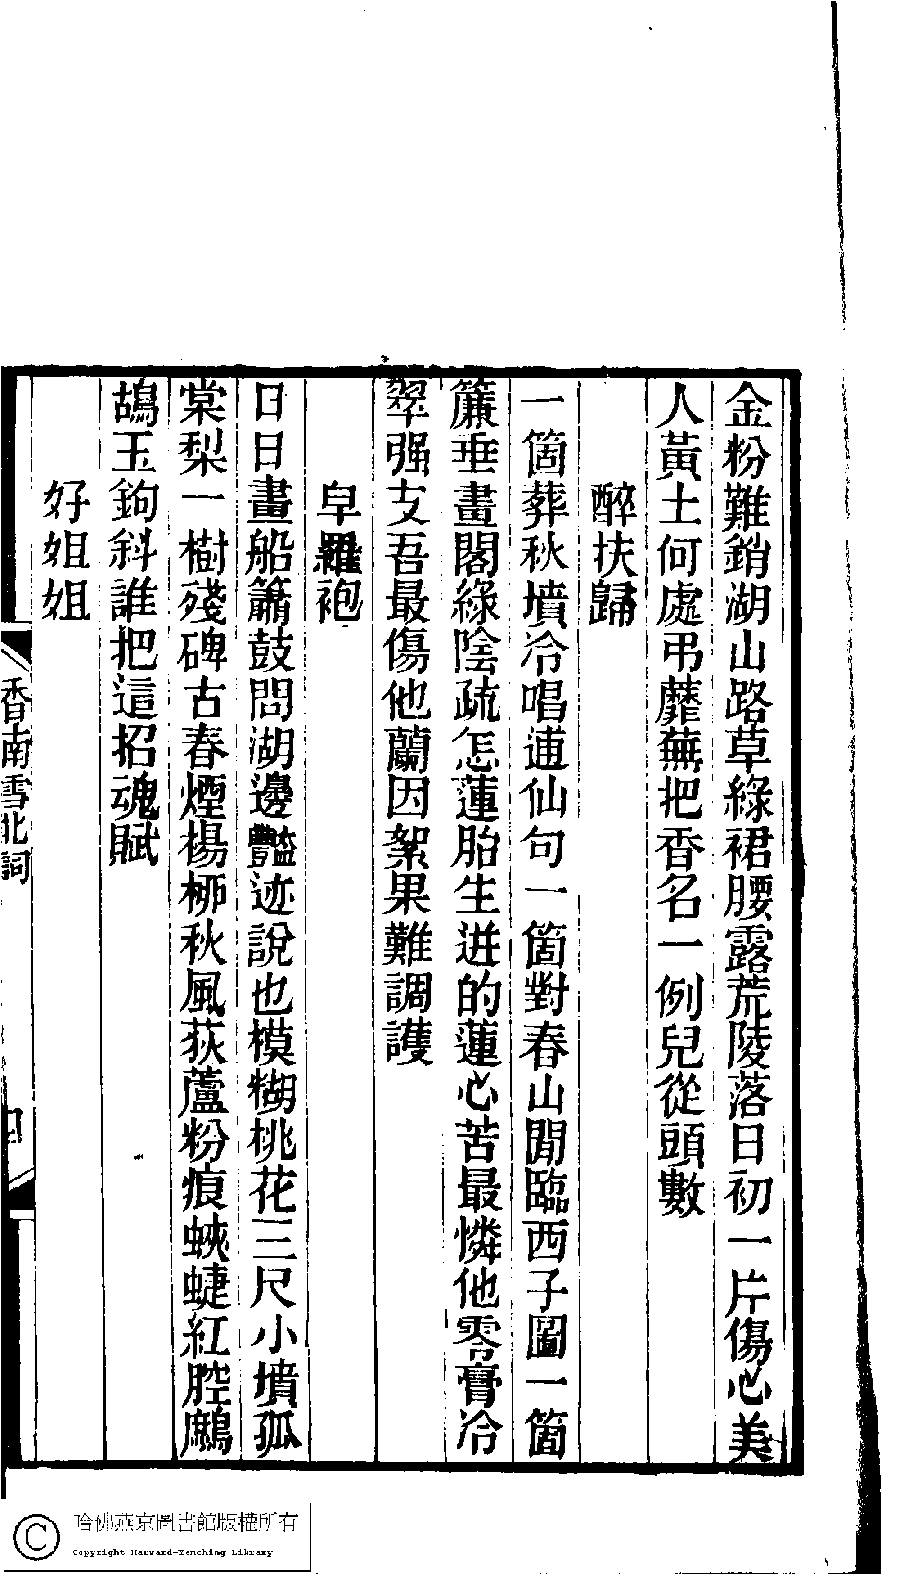 金粉難銷湖山路草綠裙腰露荒陵落日初一片傷心美
人黃土何處弔蘼蕪把香名一例兒從頭數
醉扶歸
一箇葬秋墳冷唱逋仙句一箇對春山閒臨西子圖一箇
簾垂畫閣綠陰疏怎蓮胎生迸的蓮心苦最憐他零膏冷
翠强支吾最傷他蘭因絮果難調護
皁羅袍
日日畫船簫鼓問湖邊豔迹說也模糊桃花三尺小墳孤
棠梨一樹殘碑古春煙楊柳秋風荻蘆粉痕蛺蜨紅腔鷓
鴣玉鉤斜誰把這招魂賦
好姐姐
香南雪北詞
哈佛燕京圖書館版權所有
Copyright Harvard-Yenching Library